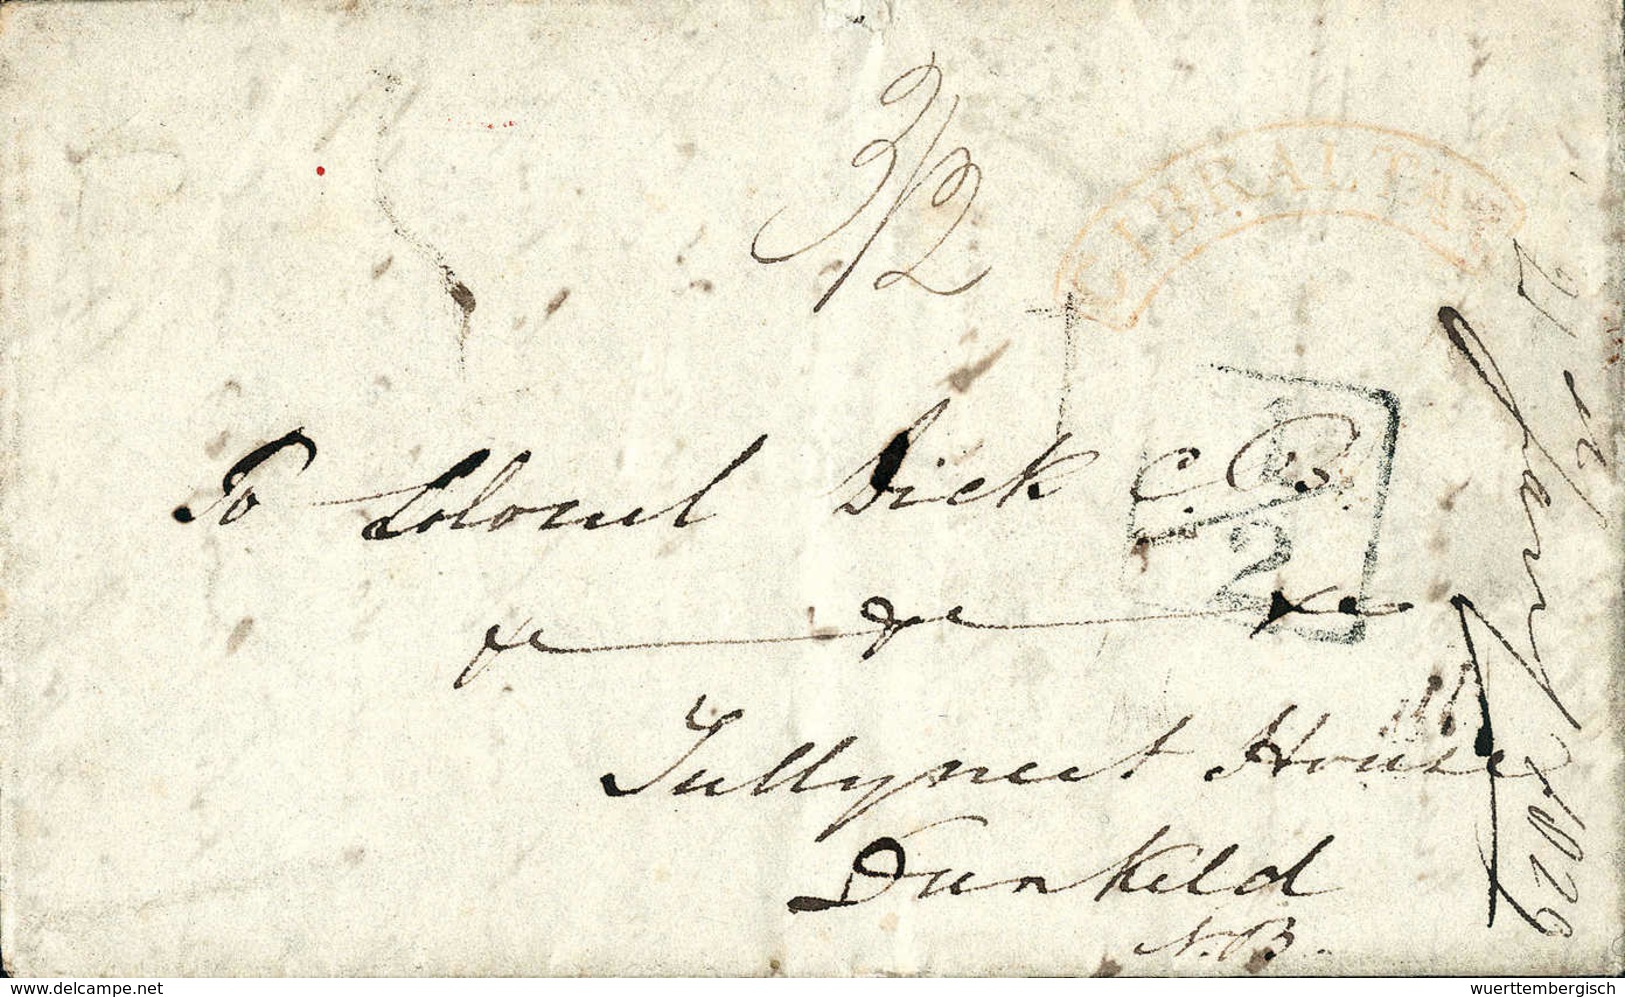 3/2
GIBRALTAR
To Colonel Dick C.B.
&c &c &c
1/2
Tullymett House
Dunkeld
N.B.
Jany 1829
delcampe.net
wuerttembergisch